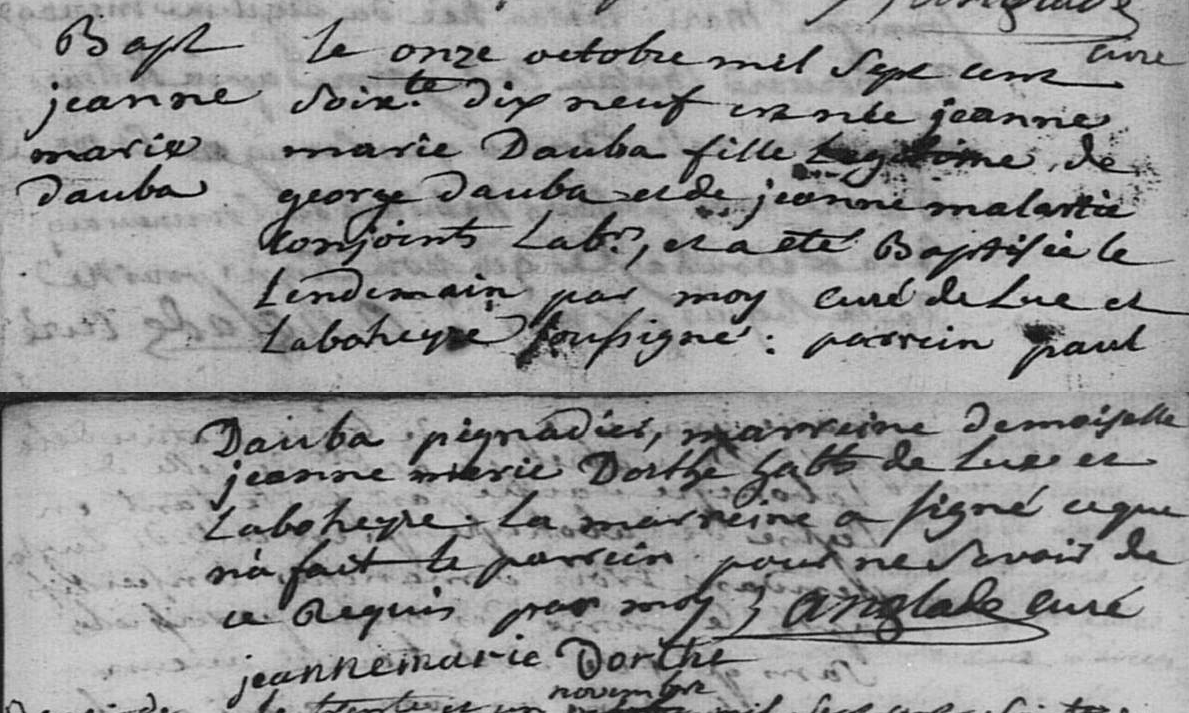 curé
Bapt le onze octobre mil sept cent
jeanne soix.te dix neuf est née jeanne
marie marie Dauba fille Legitime de
Dauba george Dauba et de jeanne malartic
conjoints Lab.rs, et a eté Baptisée le
Lendemain par moy curé de Lue et
Laboheyre soussigné : parrein paul
Dauba pignadier, marreine demoiselle
jeanne marie Dorthe habts de Lue et
Laboheyre. La marreine a signé ceque
n'a fait le parrein pour ne Savoir de
ce Requis par moy ; anglade curé
jeannemarie Dorthe
novembre
le trente et un mil sept cent